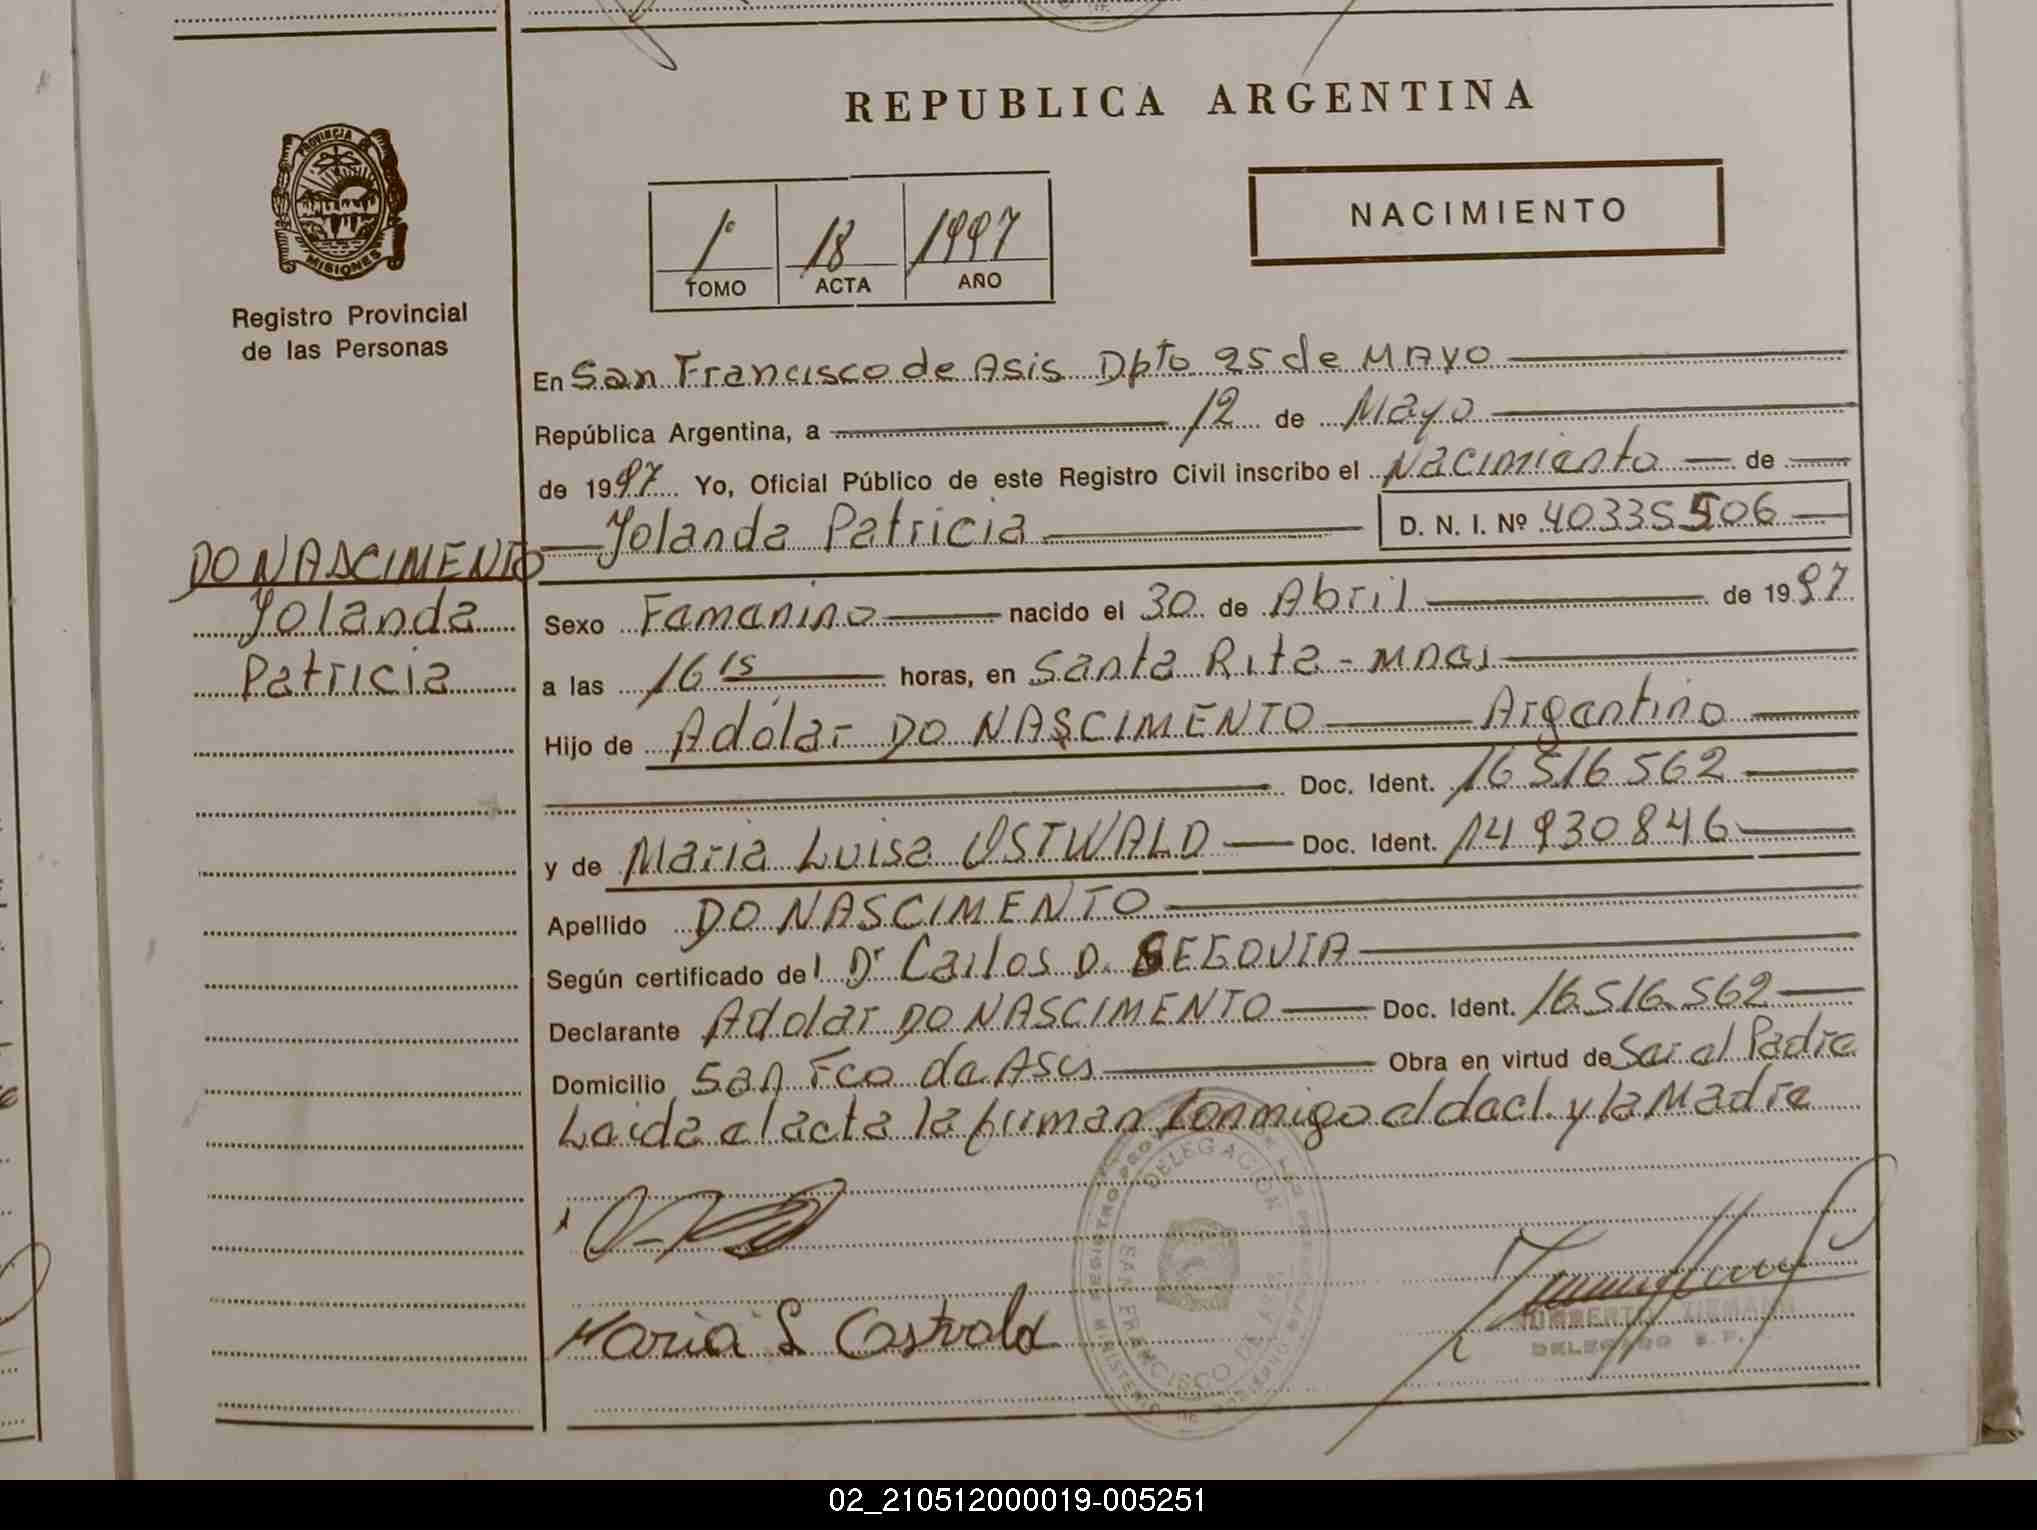 REPUBLICA ARGENTINA
PROVINCIA
MISIONES
Registro Provincial
de las Personas
1º 18 1997
TOMO ACTA AÑO
NACIMIENTO
En San Francisco de Asis Dpto 25 de MAYO
República Argentina, a 12 de Mayo
de 1997 Yo, Oficial Público de este Registro Civil inscribo el Nacimiento de
Yolanda Patricia D. N. I. Nº 40335506
DO NASCIMENTO
Yolanda
Patricia
Sexo Femenino nacido el 30 de Abril de 1997
a las 16 15 horas, en Santa Rita - Mnes
Hijo de Adolar DO NASCIMENTO Argentino
Doc. Ident. 16516562
y de Maria Luisa OSTWALD Doc. Ident. 14930846
Apellido DO NASCIMENTO
Según certificado del Dr Carlos D. SEGOVIA
Declarante Adolar DO NASCIMENTO Doc. Ident. 16.516.562
Domicilio San Fco de Asis Obra en virtud de Ser el Padre
Leida el acta la firman Conmigo el decl. y la Madre
DELEGACION
SAN FRANCISCO DE ASIS
Maria L Ostwald
DELEGADO
02_210512000019-005251